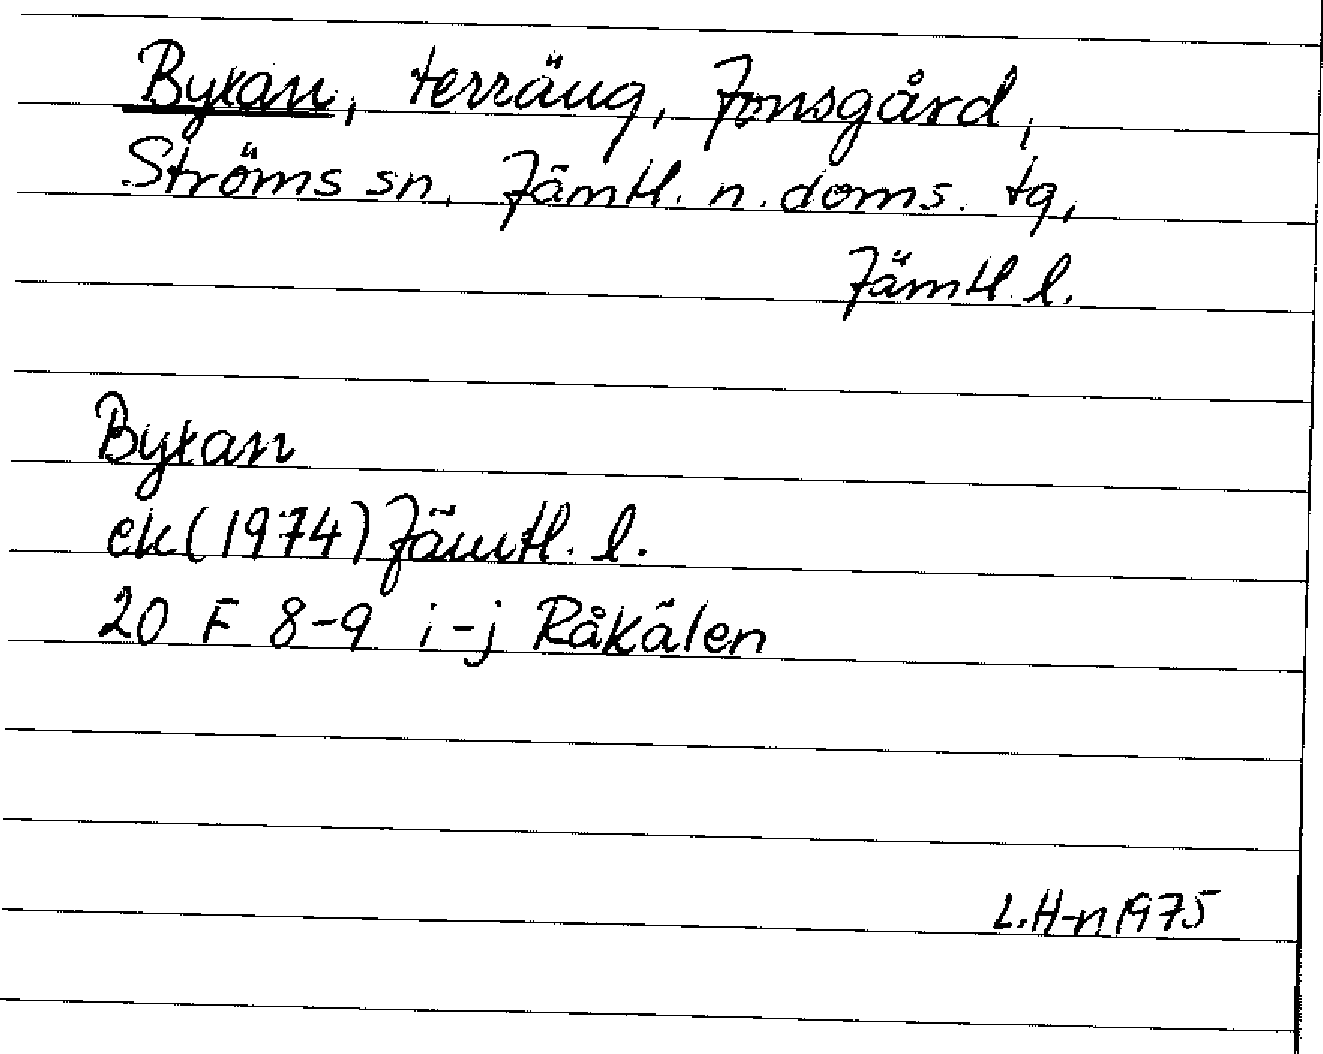 Byxan, terräng, Jonsgård,
Ströms sn, Jämtl. n. doms. tg,
Jämtl. l.
Byxan
ek (1974) Jämtl. l.
20 F 8-9 i-j Råkälen
L.H-n 1975